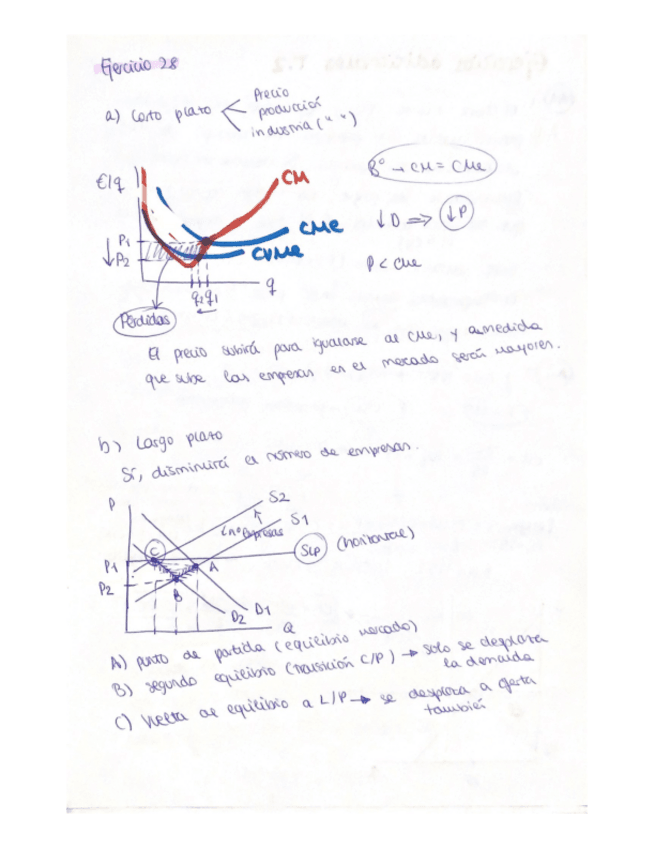 Ejercicio 28
a) Corto plazo
Precio
producción
industria (" ")
€/q
CM
Bº → CM = CMe
↓D ⇒ ↓P
CMe
P1
CVMe
↓ P2
P < CMe
q2 q1
q
Pérdidas
El precio subirá para igualarse al CMe, y a medida
que sube las empresas en el mercado serán mayores.
b) Largo plazo
Sí, disminuirá el número de empresas.
P
S2
S1
SLP (horizontal)
C
P1
A
P2
B
D2
D1
Q
A) punto de partida (equilibrio mercado)
B) segundo equilibrio (transición C/P) → solo se desplaza
la demanda
C) Vuelta al equilibrio a L/P → se desplaza a oferta
también